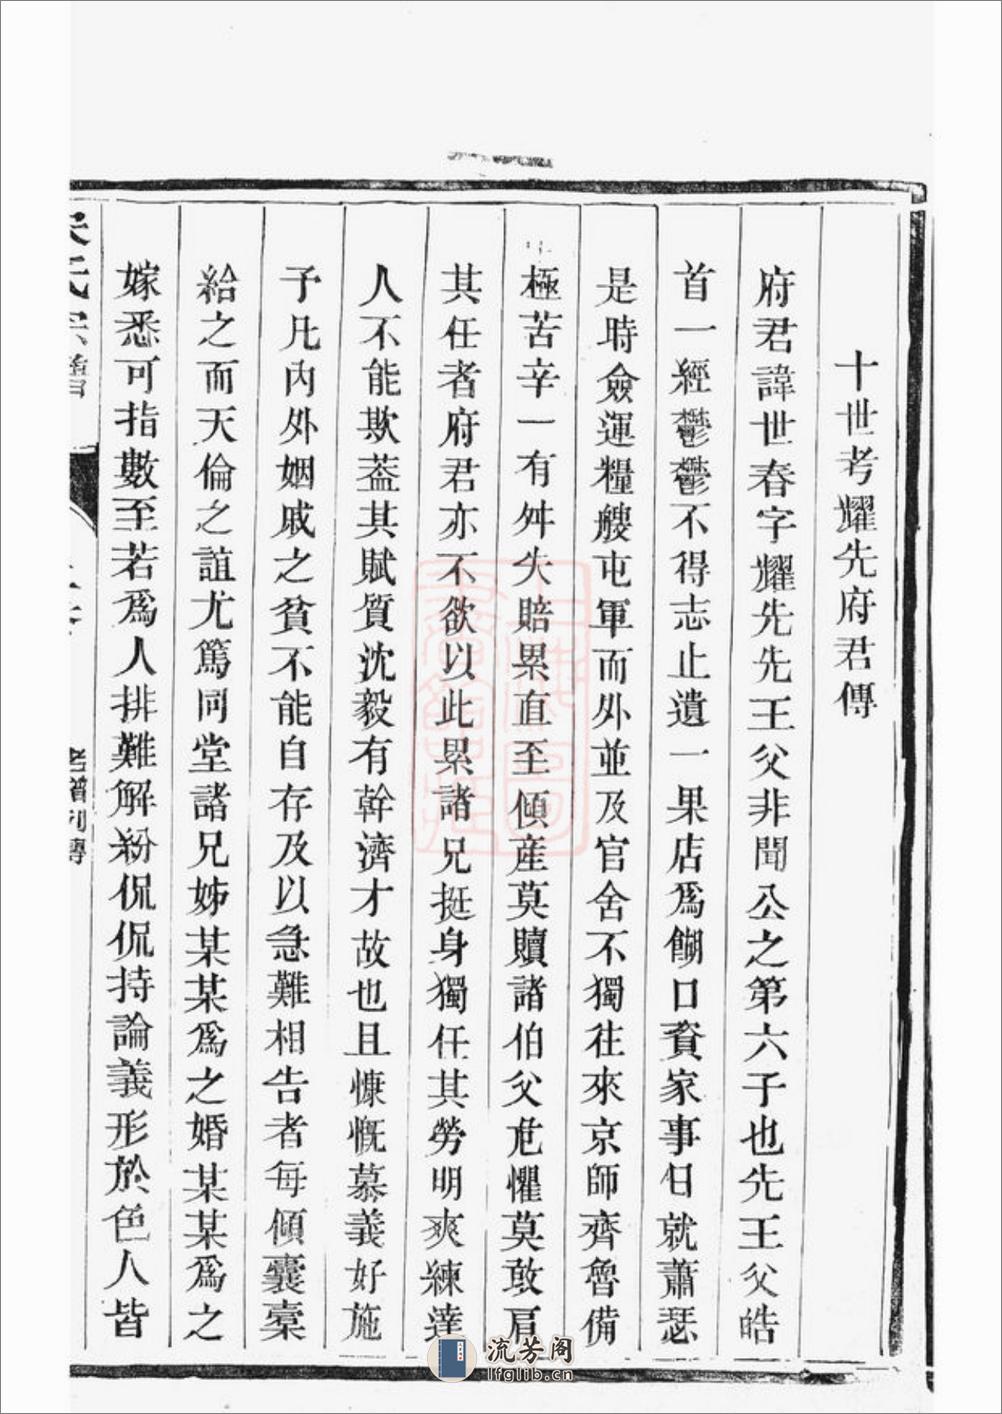 十世考耀先府君傳
府君諱世春字耀先先王父非聞公之第六子也先王父皓
首一經鬱鬱不得志止遺一果店爲餬口資家事日就蕭瑟
是時僉運糧艘屯軍而外並及官舍不獨往來京師齊魯備
極苦辛一有舛失賠累直至傾産莫贖諸伯父危懼莫敢肩
其任者府君亦不欲以此累諸兄挺身獨任其勞明爽練達
人不能欺葢其賦質沈毅有幹濟才故也且慷慨慕義好施
予凡内外姻戚之貧不能自存及以急難相告者每傾囊橐
給之而天倫之誼尤篤同堂諸兄姊某某爲之婚某某爲之
嫁悉可指數至若爲人排難解紛侃侃持論義形於色人皆
氏宗譜
老譜列傳
流芳阁
lfglib.cn